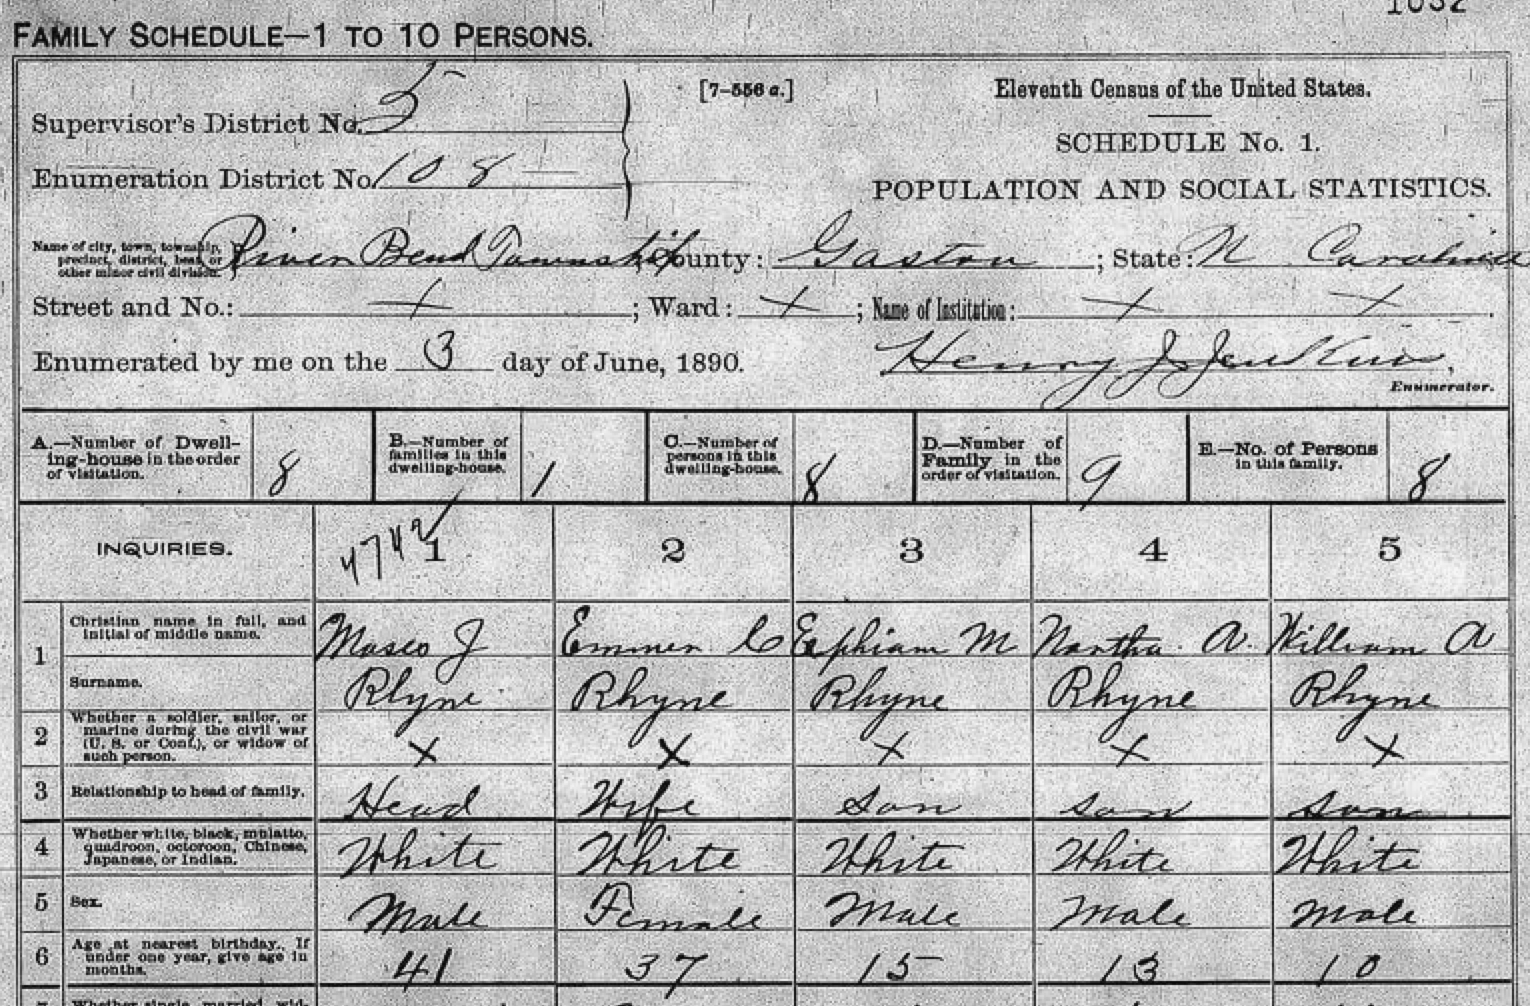 1032
FAMILY SCHEDULE—1 TO 10 PERSONS.
[7-556 a.]
Eleventh Census of the United States.
Supervisor's District No. 5
SCHEDULE No. 1.
Enumeration District No. 108
POPULATION AND SOCIAL STATISTICS.
Name of city, town, township, precinct, district, beat, or other minor civil division. } River Bend Township; County: Gaston; State: N Carolina
Street and No.: x; Ward: x; Name of Institution: x x.
Enumerated by me on the 3 day of June, 1890.
Henry J Jenkins,
Enumerator.
A.—Number of Dwelling-house in the order of visitation. 8
B.—Number of families in this dwelling-house. 1
C.—Number of persons in this dwelling-house. 8
D.—Number of Family in the order of visitation. 9
E.—No. of Persons in this family. 8
INQUIRIES. 1 2 3 4 5
1 Christian name in full, and initial of middle name. J Emmer C Ephiam M Nartha A. William A
Surname. Rhyne Rhyne Rhyne Rhyne Rhyne
2 Whether a soldier, sailor, or marine during the civil war (U. S. or Conf.), or widow of such person. x x x x x
3 Relationship to head of family. Head Wife Son Son Son
4 Whether white, black, mulatto, quadroon, octoroon, Chinese, Japanese, or Indian. White White White White White
5 Sex. Male Female Male Male Male
6 Age at nearest birthday. If under one year, give age in months. 41 37 15 13 10